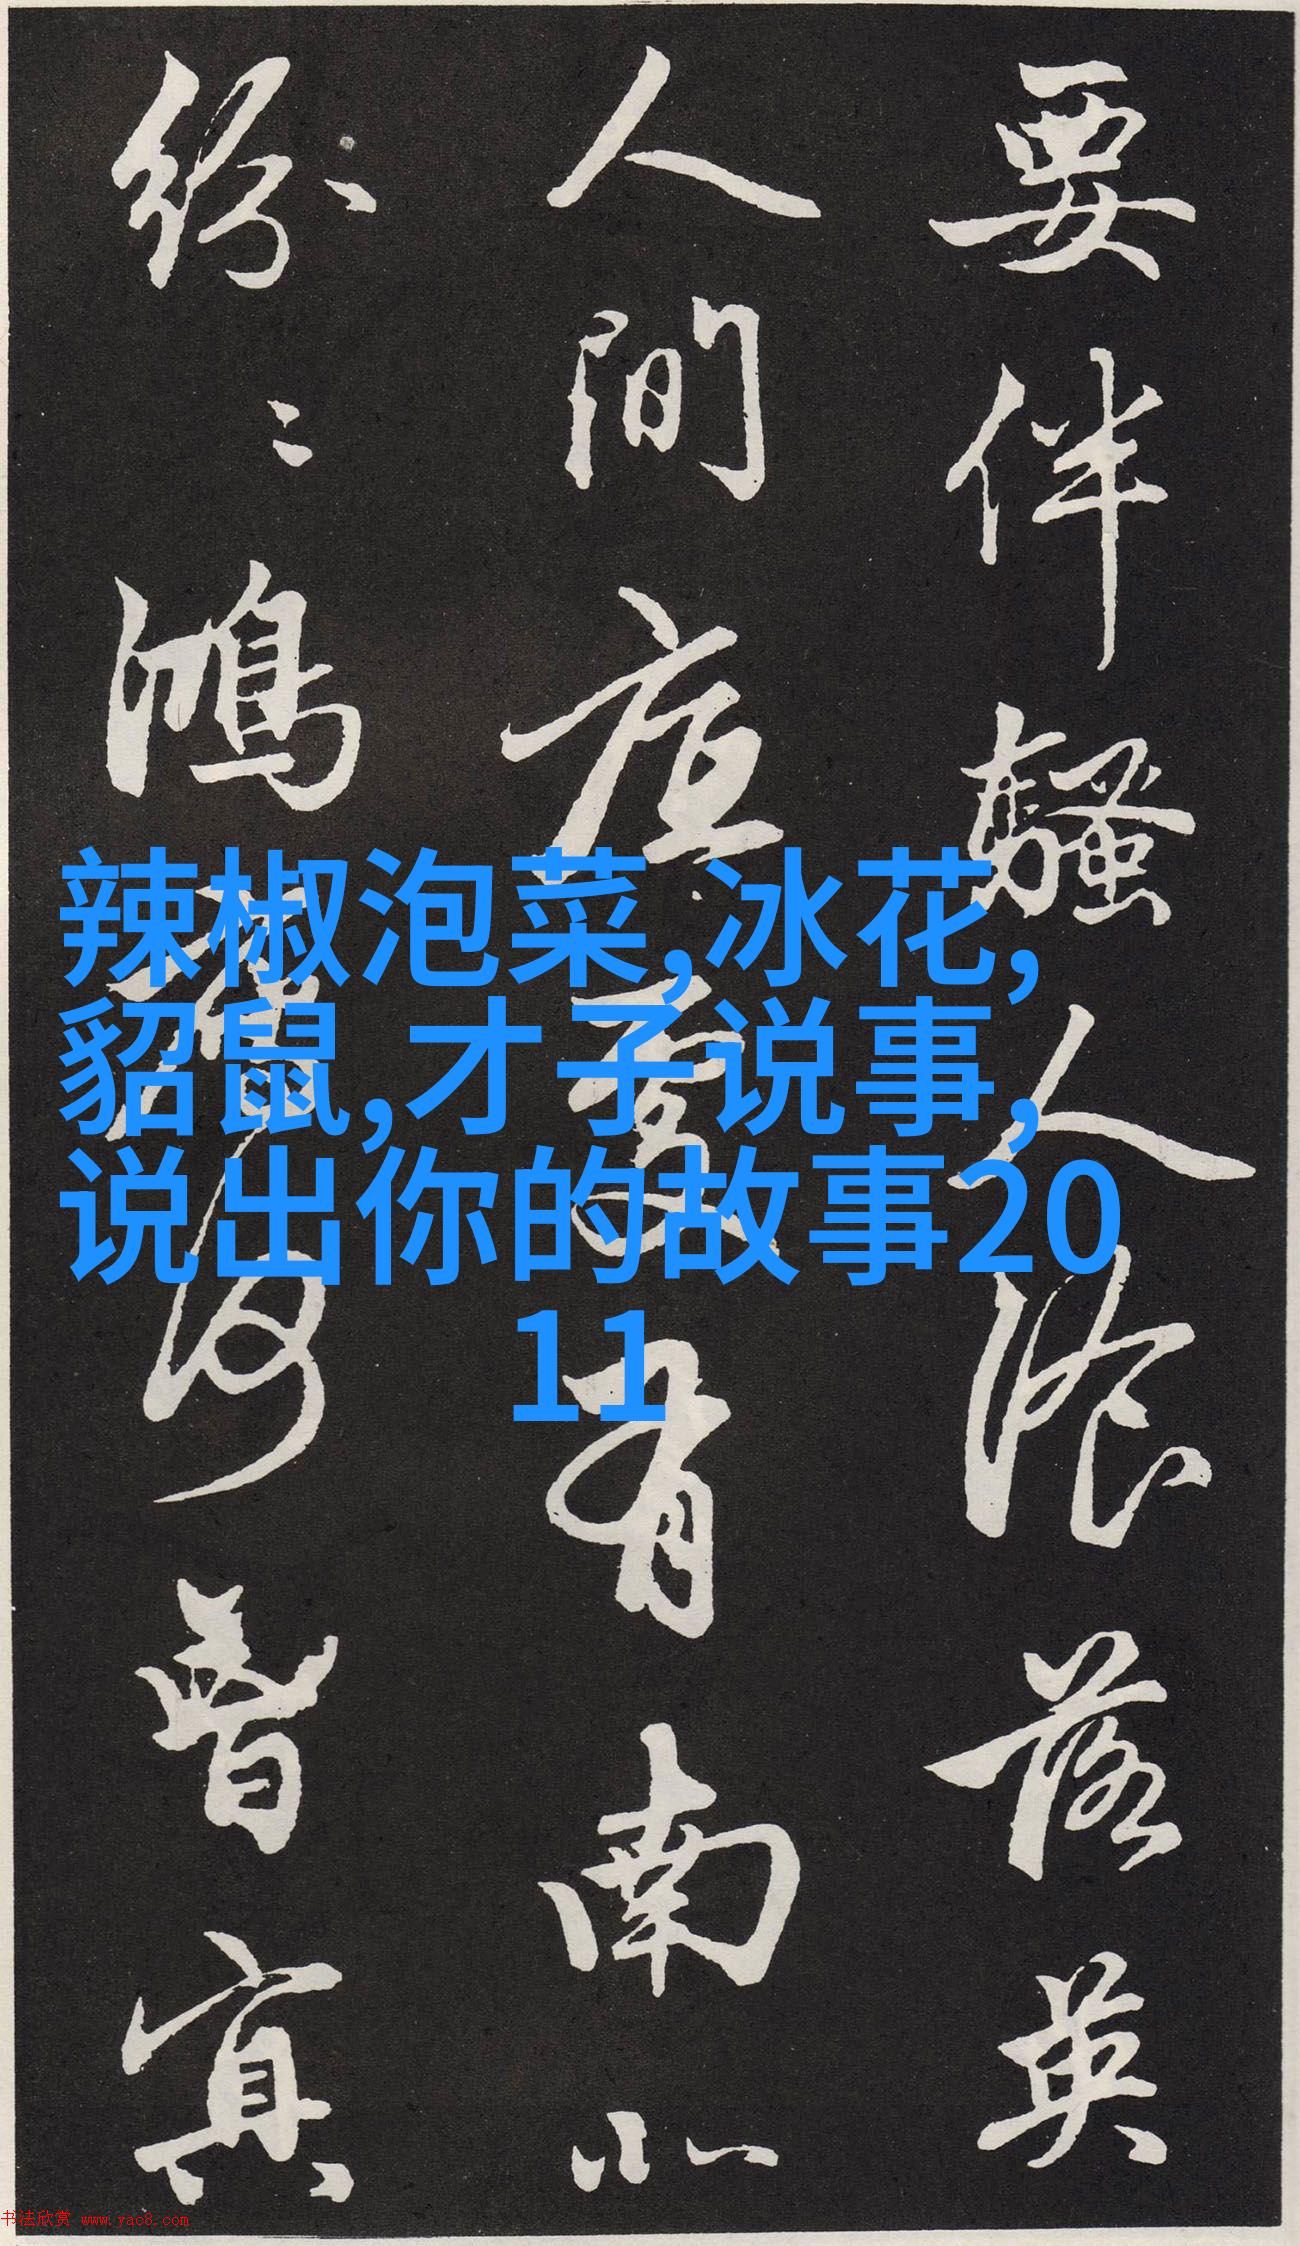 要伴騷人飡落英
人間底處有南北
紛紛鴻鴈何曾冥
辣椒泡菜,冰花,
貂鼠,才子说事,
说出你的故事20
11
书法欣赏 www.yac8.com